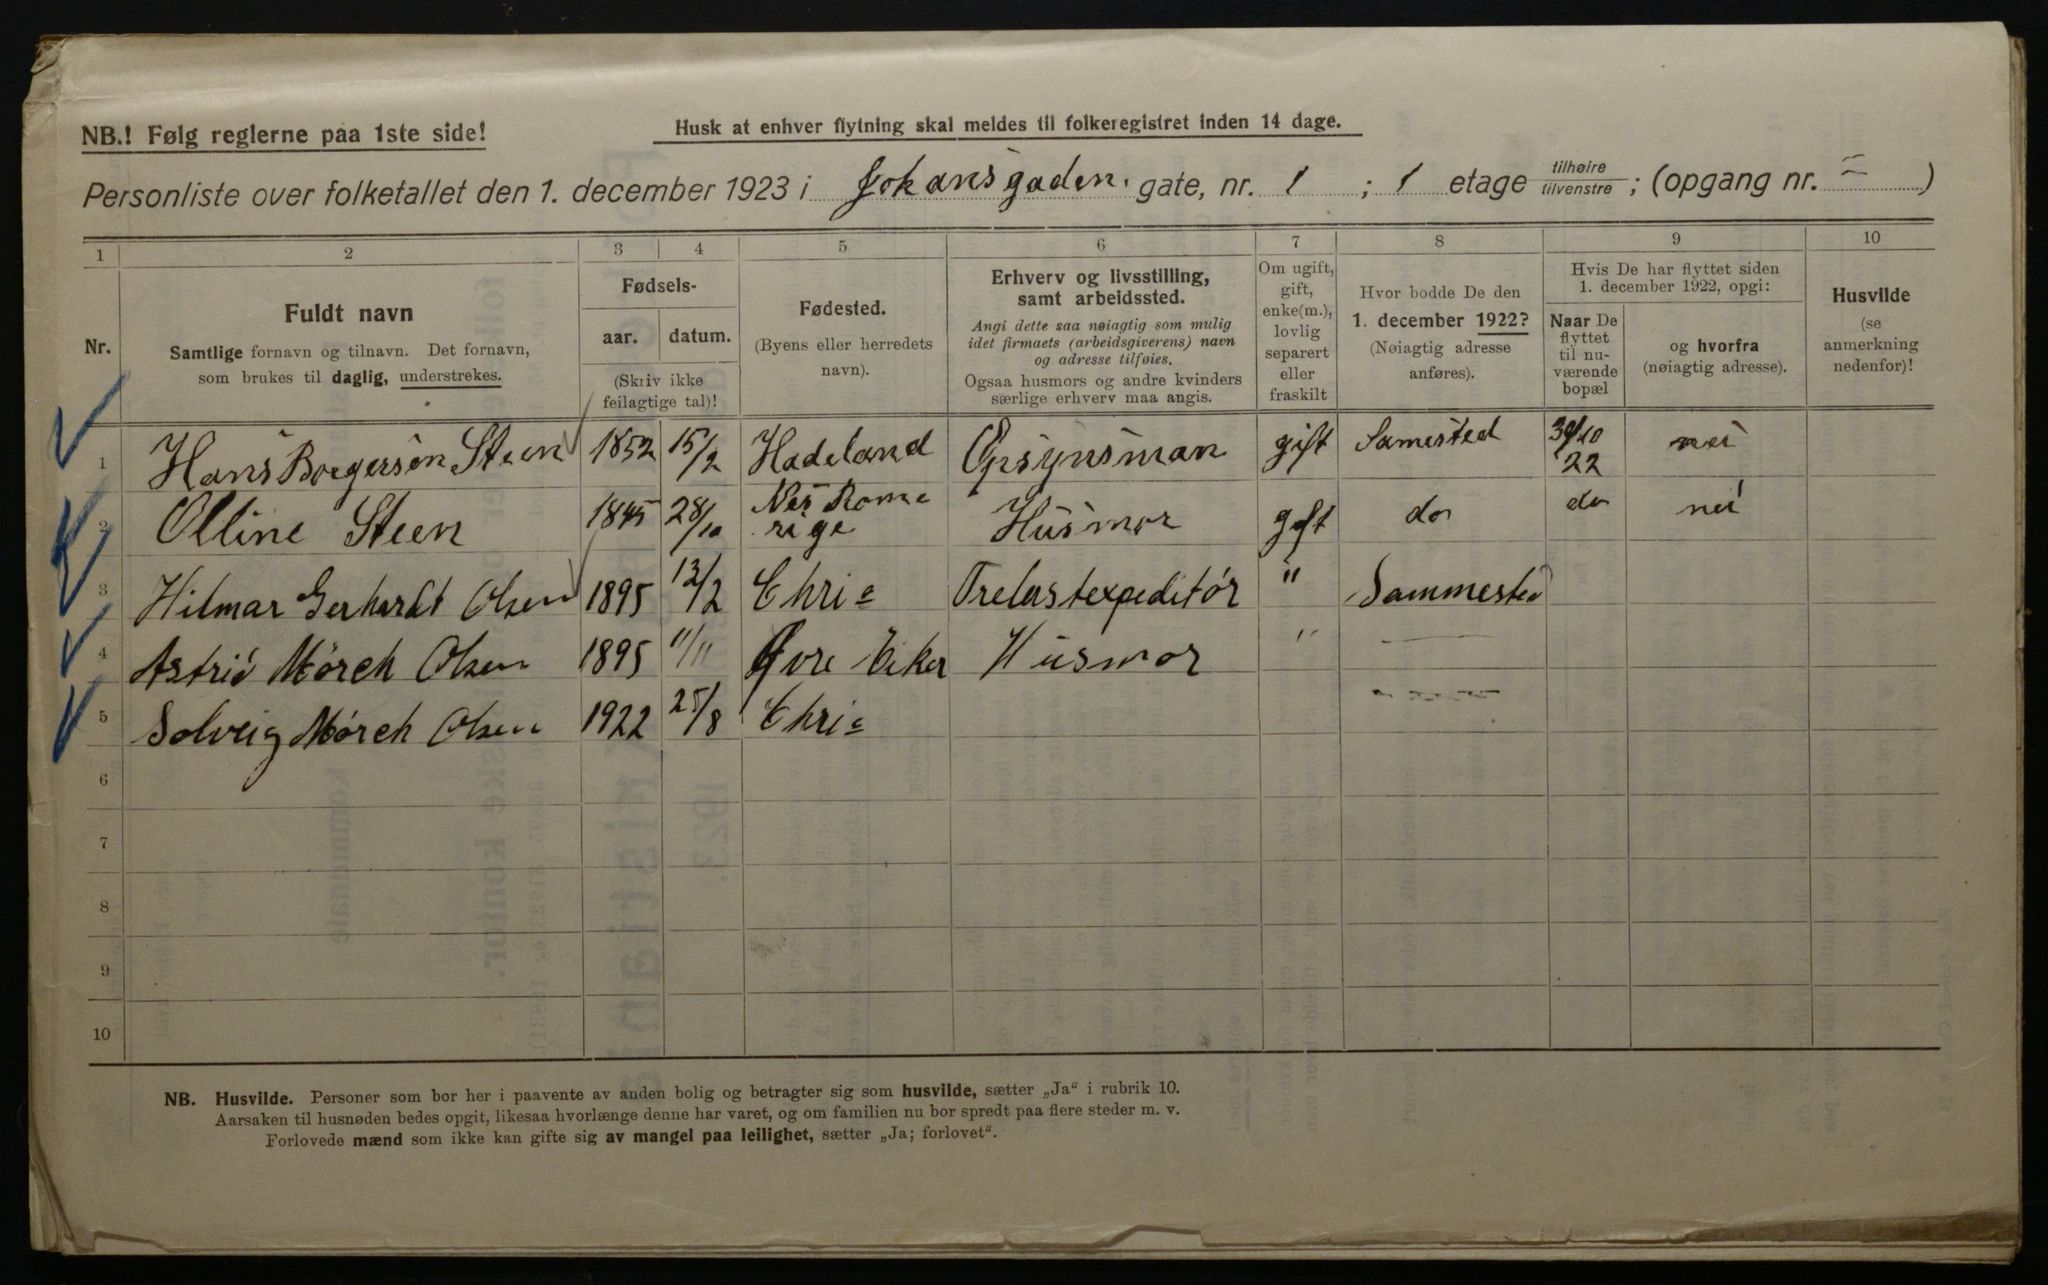 NB.! Følg reglerne paa 1ste side!
Husk at enhver flytning skal meldes til folkeregistret inden 14 dage.
Personliste over folketallet den 1. december 1923 i Johansgaden. gate, nr. 1 ; 1 etage tilhøire tilvenstre ; (opgang nr. )
1 2 3 4 5 6 7 8 9 10
Nr.
Fuldt navn
Samtlige fornavn og tilnavn. Det fornavn,
som brukes til daglig, understrekes.
Fødsels-
aar. datum.
(Skriv ikke
feilagtige tal)!
Fødested.
(Byens eller herredets
navn).
Erhverv og livsstilling,
samt arbeidssted.
Angi dette saa nøiagtig som mulig
idet firmaets (arbeidsgiverens) navn
og adresse tilføies.
Ogsaa husmors og andre kvinders
særlige erhverv maa angis.
Om ugift,
gift,
enke(m.),
lovlig
separert
eller
fraskilt
Hvor bodde De den
1. december 1922?
(Nøiagtig adresse
anføres).
Hvis De har flyttet siden
1. december 1922, opgi:
Naar De
flyttet
til nu-
værende
bopæl
og hvorfra
(nøiagtig adresse).
Husvilde
(se
anmerkning
nedenfor)!
1 Hans Borgersen Steen 1852 15/2 Hadeland Opsynsman gift Samested 30/10 22 nei
2 Olline Steen 1845 28/10 Nes Rome rige Husmor gift do do nei
3 Hilmar Gerhardt Olsen 1895 12/2 Chria Trelastexpeditór " Sammested
4 Astrid Mórch Olsen 1895 11/11 Øvre Eiker Husmor "
5 Solveig Mórch Olsen 1922 25/8 Chria
6
7
8
9
10
NB. Husvilde. Personer som bor her i paavente av anden bolig og betragter sig som husvilde, sætter „Ja“ i rubrik 10.
Aarsaken til husnøden bedes opgit, likesaa hvorlænge denne har varet, og om familien nu bor spredt paa flere steder m. v.
Forlovede mænd som ikke kan gifte sig av mangel paa leilighet, sætter „Ja; forlovet“.